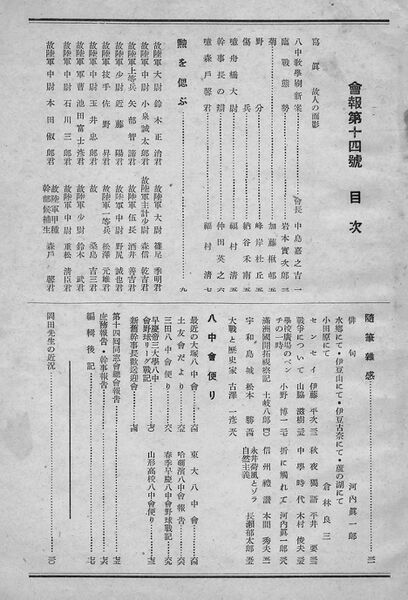 會報第十四號 目次
寫眞 故人の面影
八中教學刷新案 會長 中島嘉之吉 一
臨戰態勢 岩本實次郎 三
菊 加藤楸邨 三
野分 峰岸杜丘 五
傷兵 納谷禾南 五
噫舟橋大尉 福村清 七
幹事長の譚 仲田英之
噫森戸馨君 福村清 七
勲を偲ぶ 九
故陸軍大尉 鈴木正治君
故陸軍中尉 小泉誠太郎君
故陸軍上等兵 矢部智諦君
故陸軍少尉 近藤陽君
故陸軍技手 佐野昇君
故陸軍中尉 玉井忠郎君
故陸軍曹長 池田富士茂君
故陸軍中尉 石川三郎君
故陸軍中尉 本田俶郎君
故陸軍大尉 篠尾季明君
故陸軍主計少尉 森信乾吉君
故陸軍伍長 酒井善吉君
故陸軍中尉 野尻誠也君
故陸軍一等兵 松澤元雄君
故 桑島吉三君
故陸軍少尉 鈴木武君
故陸軍中尉 重松清臣君
故陸軍甲種幹部候補生 森戸馨君
隨筆雜感
俳句 河内眞一郎
水郷にて・伊豆山にて・伊豆古奈にて・蘆の湖にて
小田原にて 倉林良三
センセイ 伊藤平次
戰爭について 山脇滋樹
學校廣場のベンチの一時 小野博一
滿洲國開拓視察記 土岐八郎
宇和島城 松本勝
大戰と歷史家 古澤一彦
秋夜獨語 平井要
中學時代 木村俊夫
折に觸れて 河内眞一郎
信州禮讃 本間秀夫
永井荷風とゾラ自然主義 長瀬郁太郎
八中會便り
最近の大塚八中會
土友會だより
三田八中會便り
早慶帝三大學八中會野球リーグ戰記
新舊幹事長歡送迎會
東大八中會
哈爾濱八中會報告
春季早慶八中會野球戰記
山形高校八中會便り
第十四回同志會總會報告
庶務報告・幹事報告
編輯後記
岡田先生の近況